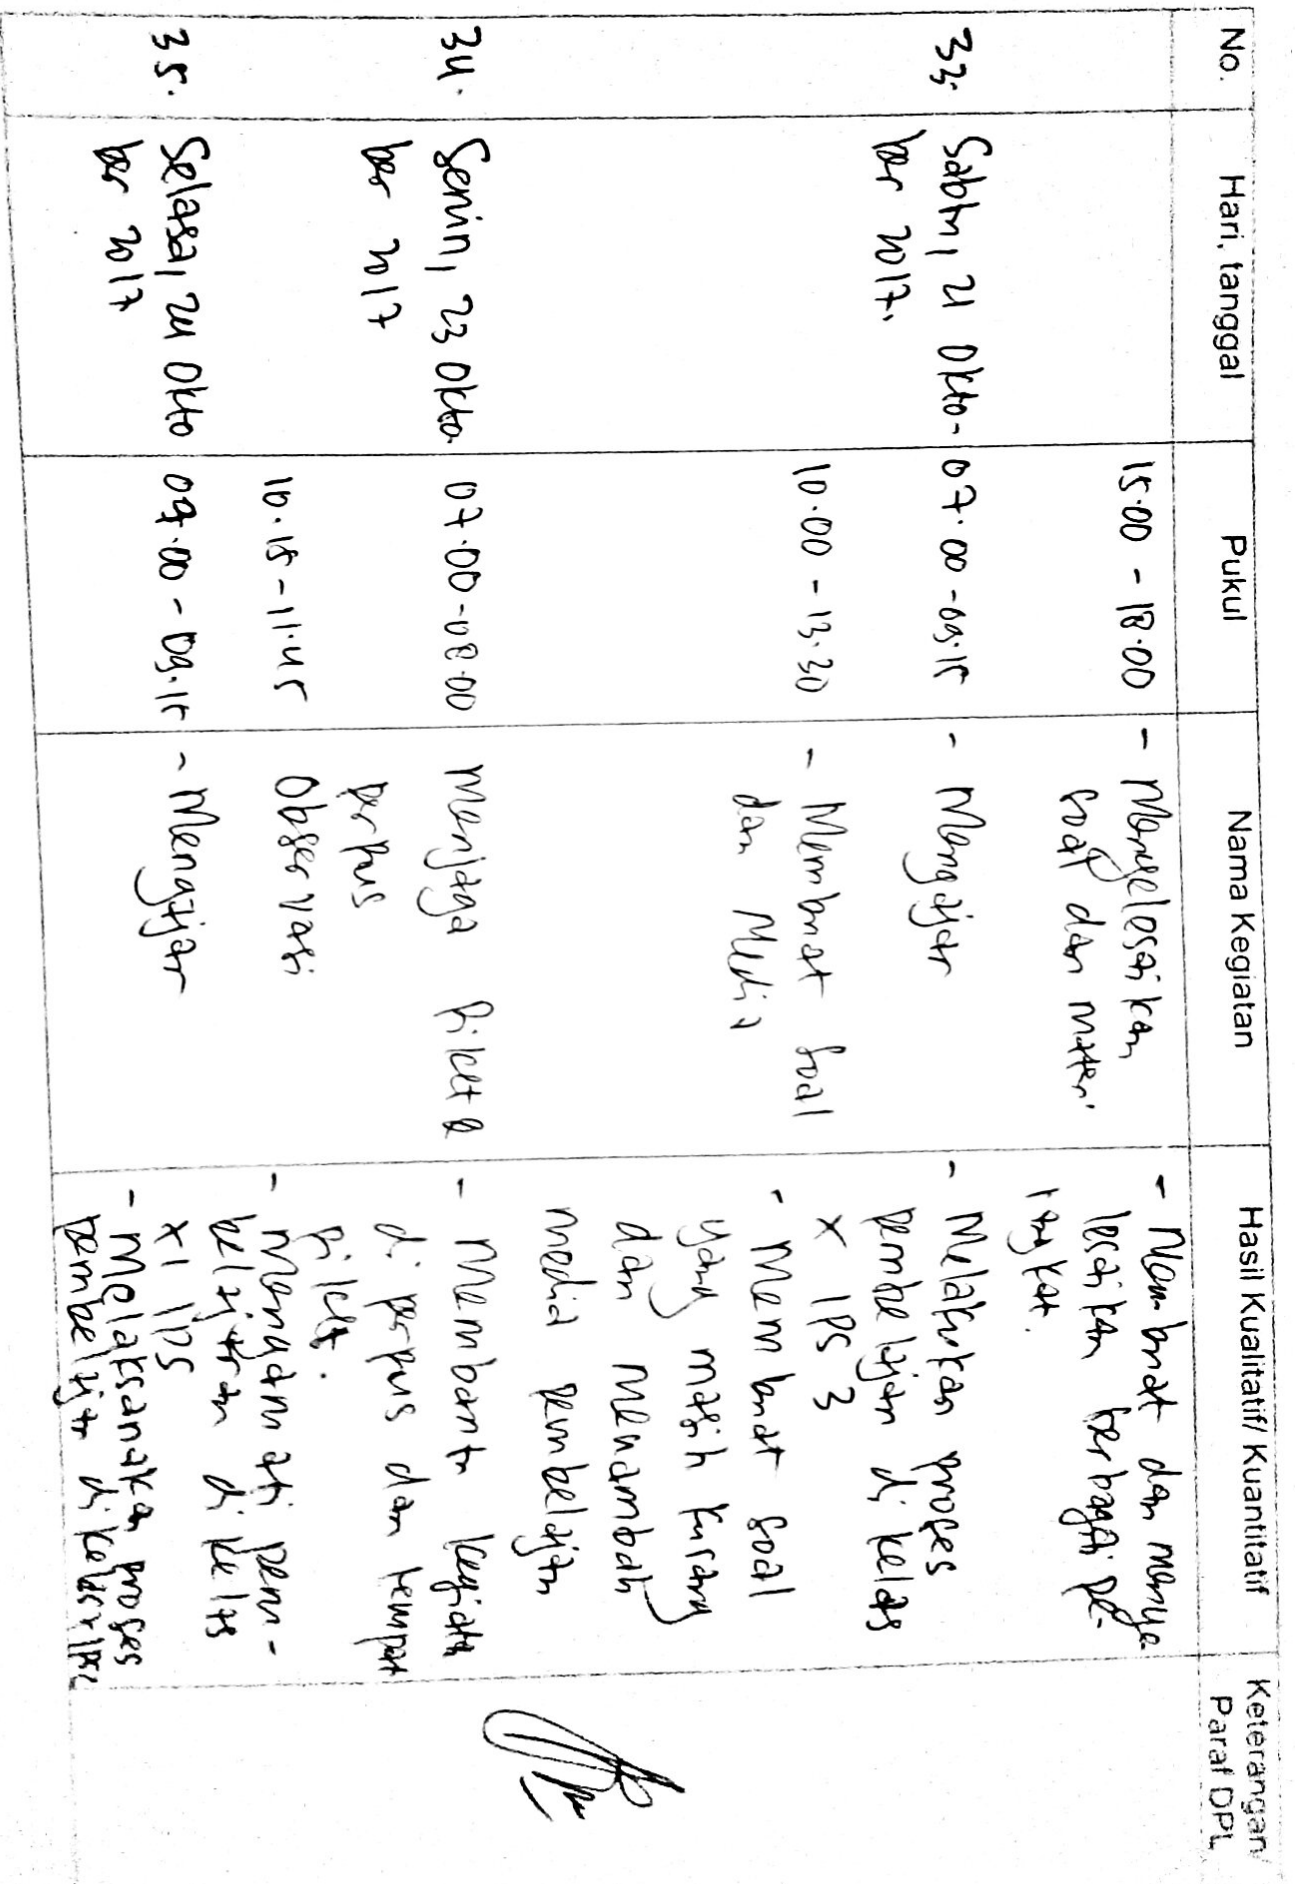 No.
Hari, tanggal
Pukul
Nama Kegiatan
Hasil Kualitatif/ Kuantitatif
Keterangan/
Paraf DPL
15.00 - 18.00
- Menyelesaikan
soal dan materi
- Membuat dan menye-
lesaikan berbagai pe-
rangkat.
33.
Sabtu, 21 Okto-
ber 2017.
07.00 - 09.15
- Mengajar
- Melakukan proses
pembelajaran di kelas
X IPS 3
10.00 - 13.30
- Membuat soal
dan Media
- Membuat soal
yang masih kurang
dan menambah
media pembelajan
34.
Senin, 23 Okto-
ber 2017
07.00-08.00
Menjaga Piket &
perpus
- Membantu kegiatan
di perpus dan tempat
piket.
10.15-11.45
Observasi
- Mengamati pem-
belajaran di kelas
XI IPS
35.
Selasa, 24 Okto
ber 2017
07.00 - 09.15
- Mengajar
- Melaksanakan proses
pembelajar di kelas X IPS